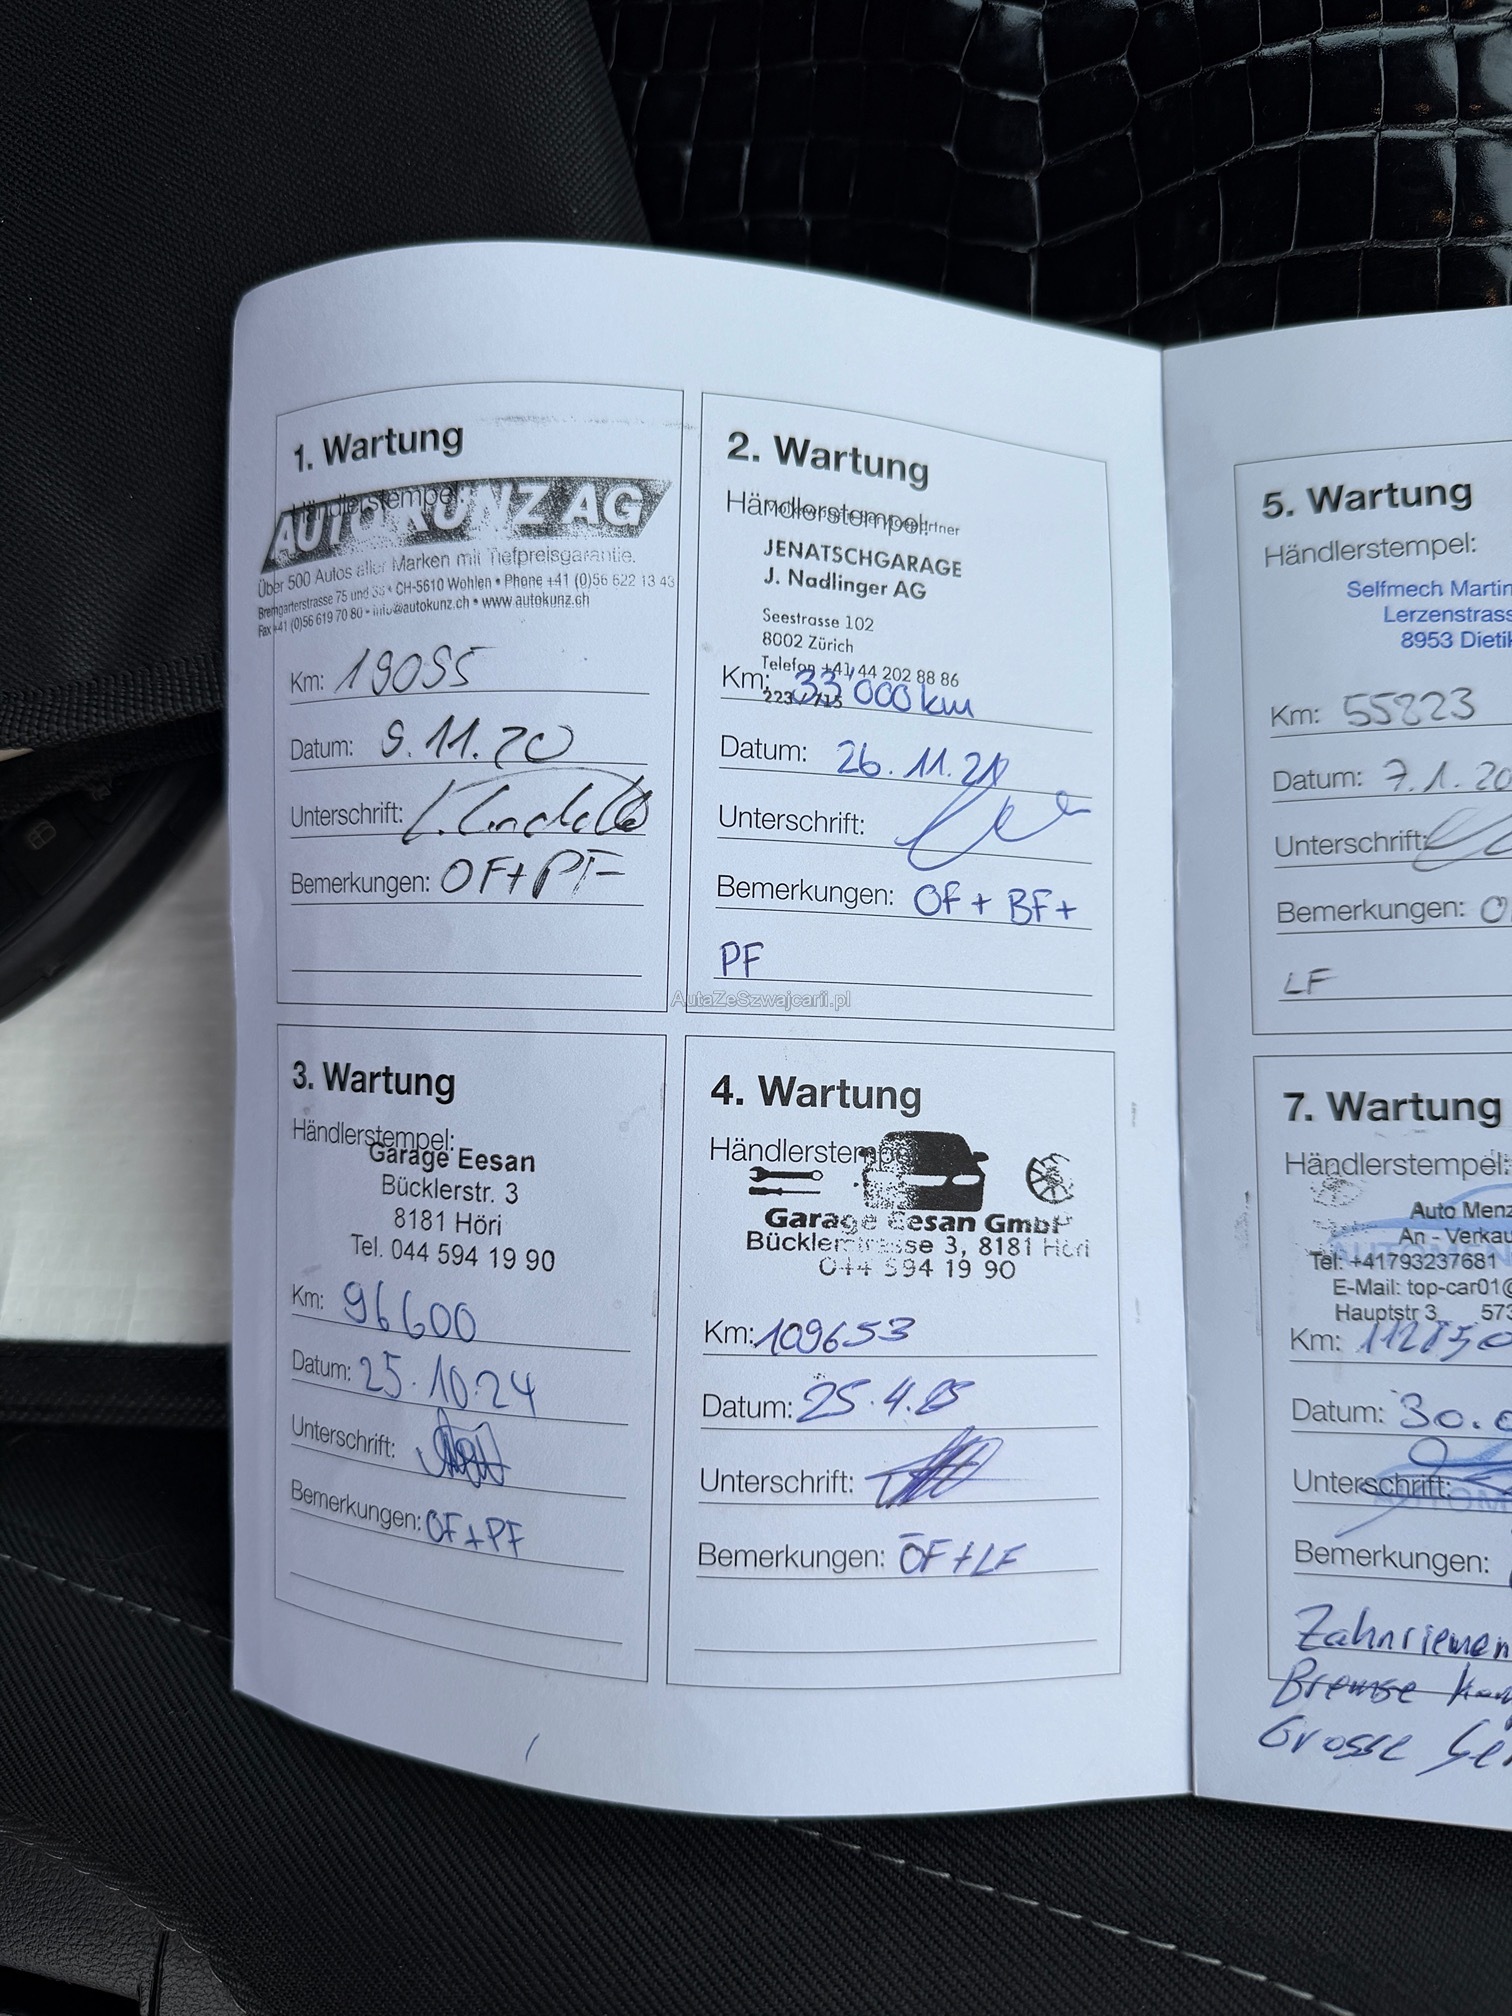 1. Wartung
Händlerstempel:
AUTO KUNZ AG
Über 500 Autos aller Marken mit Tiefpreisgarantie.
Bremgarterstrasse 75 und • CH-5610 Wohlen • Phone +41 (0)56 622 13 43
Fax +41 (0)56 619 70 80 • info@autokunz.ch • www.autokunz.ch
Km: 19055
Datum: 9.11.20
Unterschrift:
Bemerkungen: OF+PF
2. Wartung
Händlerstempel:
JENATSCHGARAGE
J. Nadlinger AG
Seestrasse 102
8002 Zürich
Telefon +41 44 202 88 86
Km: 33 000 km
Datum: 26.11.21
Unterschrift:
Bemerkungen: OF + BF +
PF
AutaZeSzwajcarii.pl
3. Wartung
Händlerstempel:
Garage Eesan
Bücklerstr. 3
8181 Höri
Tel. 044 594 19 90
Km: 96600
Datum: 25.10.24
Unterschrift:
Bemerkungen: OF+PF
4. Wartung
Händlerstempel
Garage Eesan GmbH
Bücklerstrasse 3, 8181 Höri
044 594 19 90
Km: 109653
Datum: 25.4.25
Unterschrift:
Bemerkungen: ÖF+LF
5. Wartung
Händlerstempel:
Selfmech Martin
Lerzenstrass
8953 Dietik
Km: 55823
Datum: 7.1.20
Unterschrift:
Bemerkungen: O
LF
7. Wartung
Händlerstempel:
Auto Menz
An - Verkau
Tel: +41793237681
E-Mail: top-car01@
Hauptstr 3 573
Km:
Datum: 30.0
Unterschrift:
Bemerkungen:
Zahnriemen
Bremse
Grosse Se